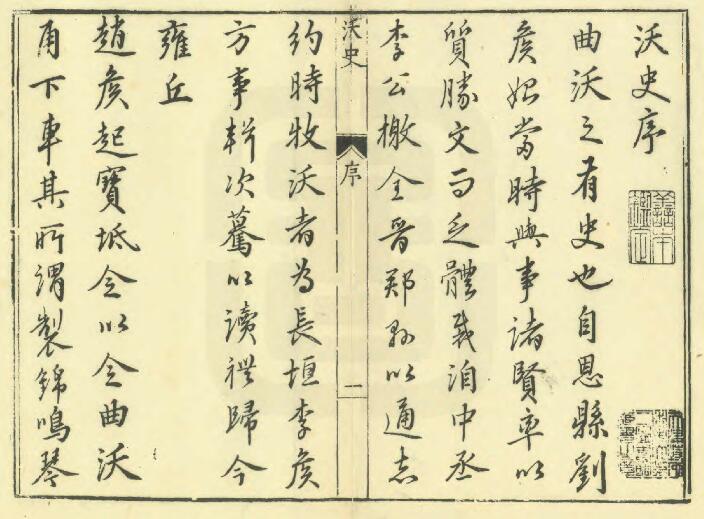 沃史序
曲沃之有史也自恩縣劉
侯始當時與事諸賢率以
質勝文而乏體裁洎中丞
李公檄全晉郡縣以通志
沃史
序
一
約時牧沃者為長垣李侯
方事輯次驀以讀禮歸今
雍丘
趙侯起寶坻令以令曲沃
甫下車其所謂製錦鳴琴